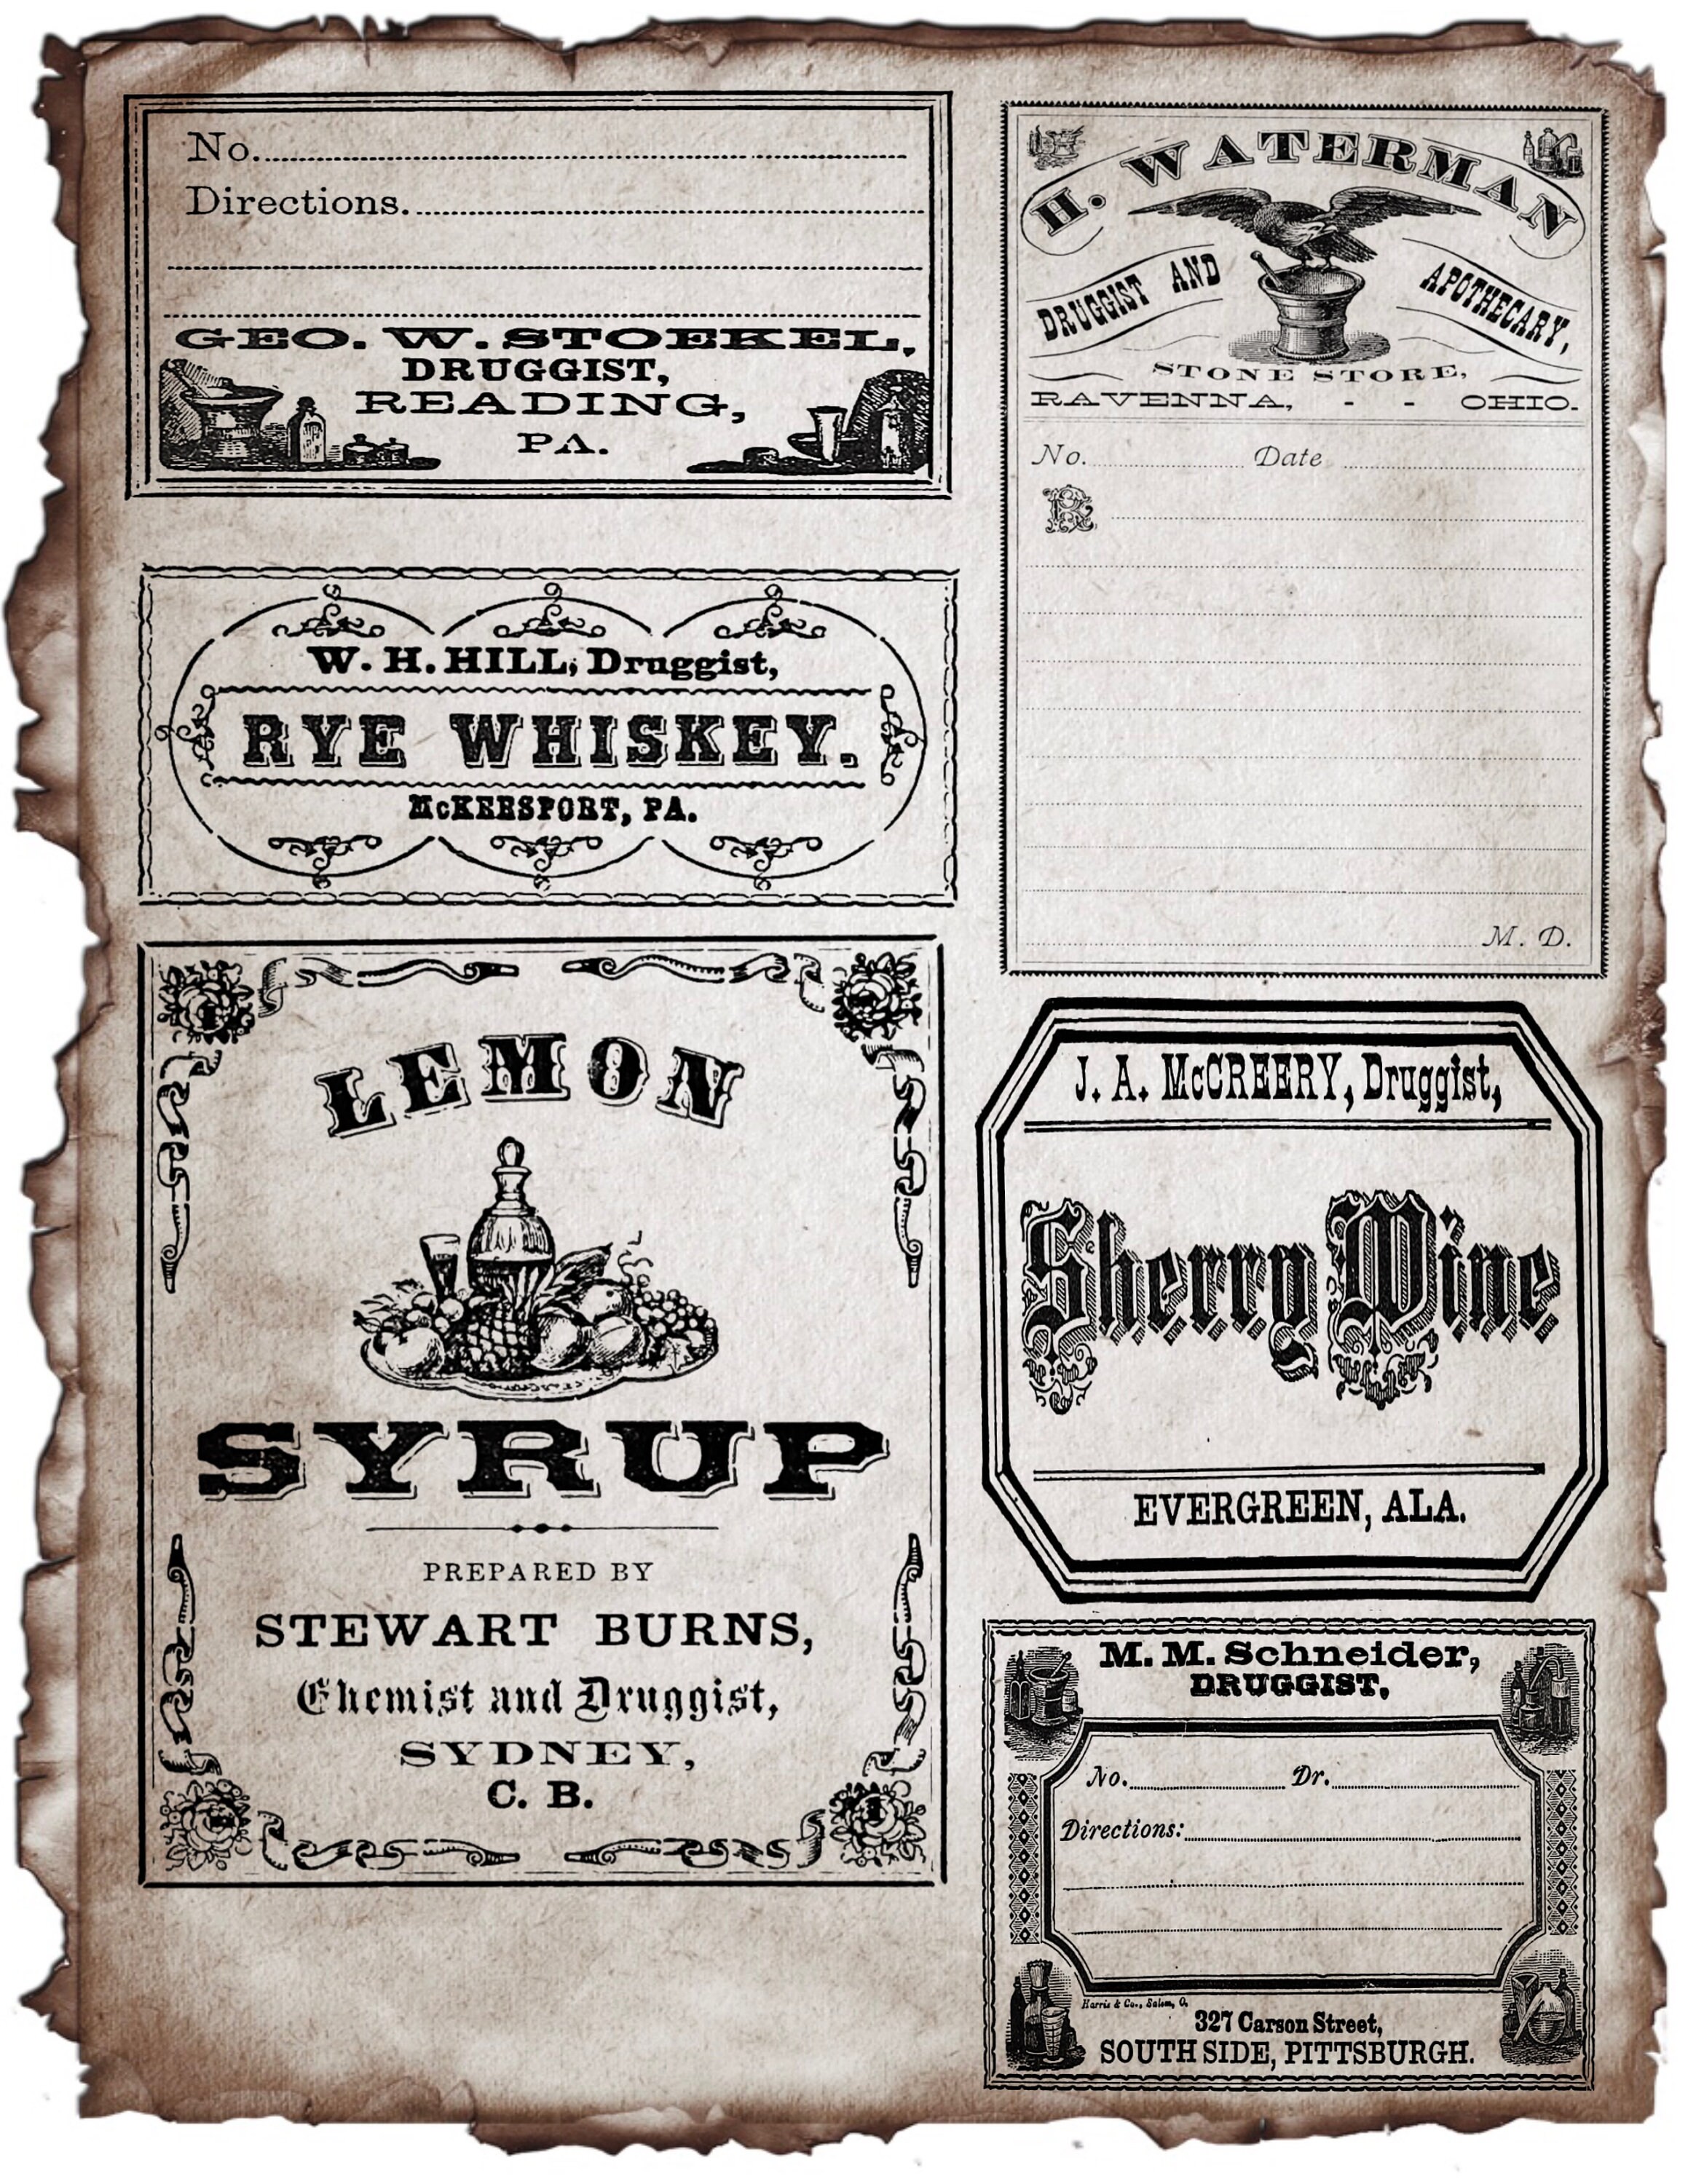 No.
Directions.
GEO. W. STOEKEL,
DRUGGIST,
READING,
PA.
W. H. HILL, Druggist,
RYE WHISKEY.
McKEESPORT, PA.
LEMON
SYRUP
PREPARED BY
STEWART BURNS,
Chemist and Druggist,
SYDNEY,
C. B.
H. WATERMAN
DRUGGIST AND APOTHECARY,
STONE STORE,
RAVENNA, - - OHIO.
No. Date
R
M. D.
J. A. McCREERY, Druggist,
Sherry Wine
EVERGREEN, ALA.
M. M. Schneider,
DRUGGIST,
No. Dr.
Directions:
Harris & Co., Salem, O.
327 Carson Street,
SOUTH SIDE, PITTSBURGH.